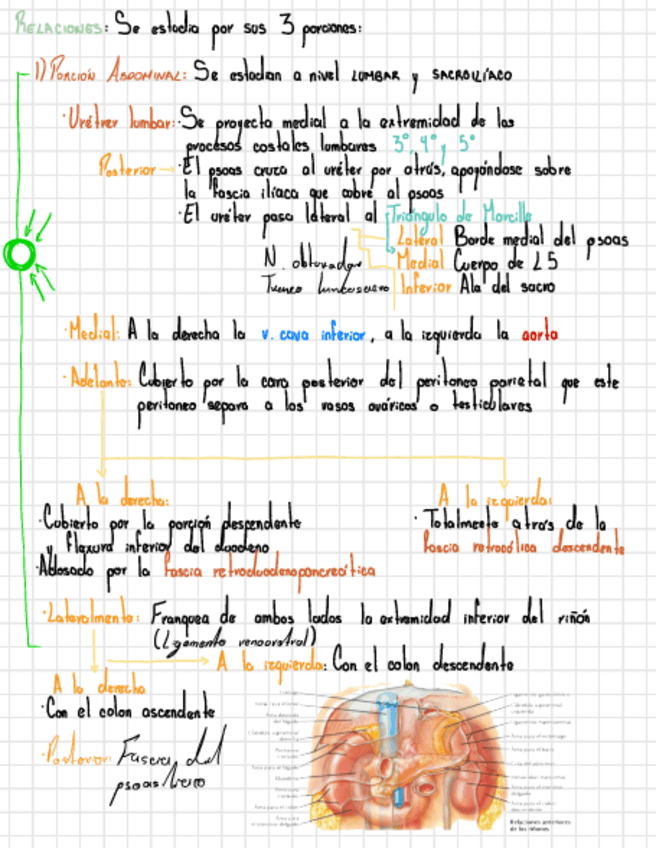 RELACIONES: Se estudia por sus 3 porciones:
1) PORCIÓN ABDOMINAL: Se estudian a nivel LUMBAR y SACROILÍACO
· Uréter lumbar: · Se proyecta medial a la extremidad de los
procesos costales lumbares 3°, 4° y 5°
Posterior → · El psoas cruza al uréter por atrás, apoyándose sobre
la fascia iliaca que cubre al psoas
· El uréter pasa lateral al Triángulo de Marcille
Lateral Borde medial del psoas
N. obturador Medial Cuerpo de L5
Tronco lumbosacro Inferior Ala del sacro
· Medial: A la derecha la v. cava inferior, a la izquierda la aorta
· Adelante: Cubierto por la cara posterior del peritoneo parietal que este
peritoneo separa a los vasos ováricos o testiculares
A la derecha:
· Cubierto por la porción descendente
y flexura inferior del duodeno
· Adosado por la fascia retroduodenopancreática
A la izquierda:
· Totalmente atrás de la
fascia retrocólica descendente
· Lateralmente: Franquea de ambos lados la extremidad inferior del riñón
(Ligamento renoureteral)
→ A la izquierda: Con el colon descendente
A la derecha
· Con el colon ascendente
· Posterior: Fascia del
psoas iliaco
Relaciones anteriores
de los riñones